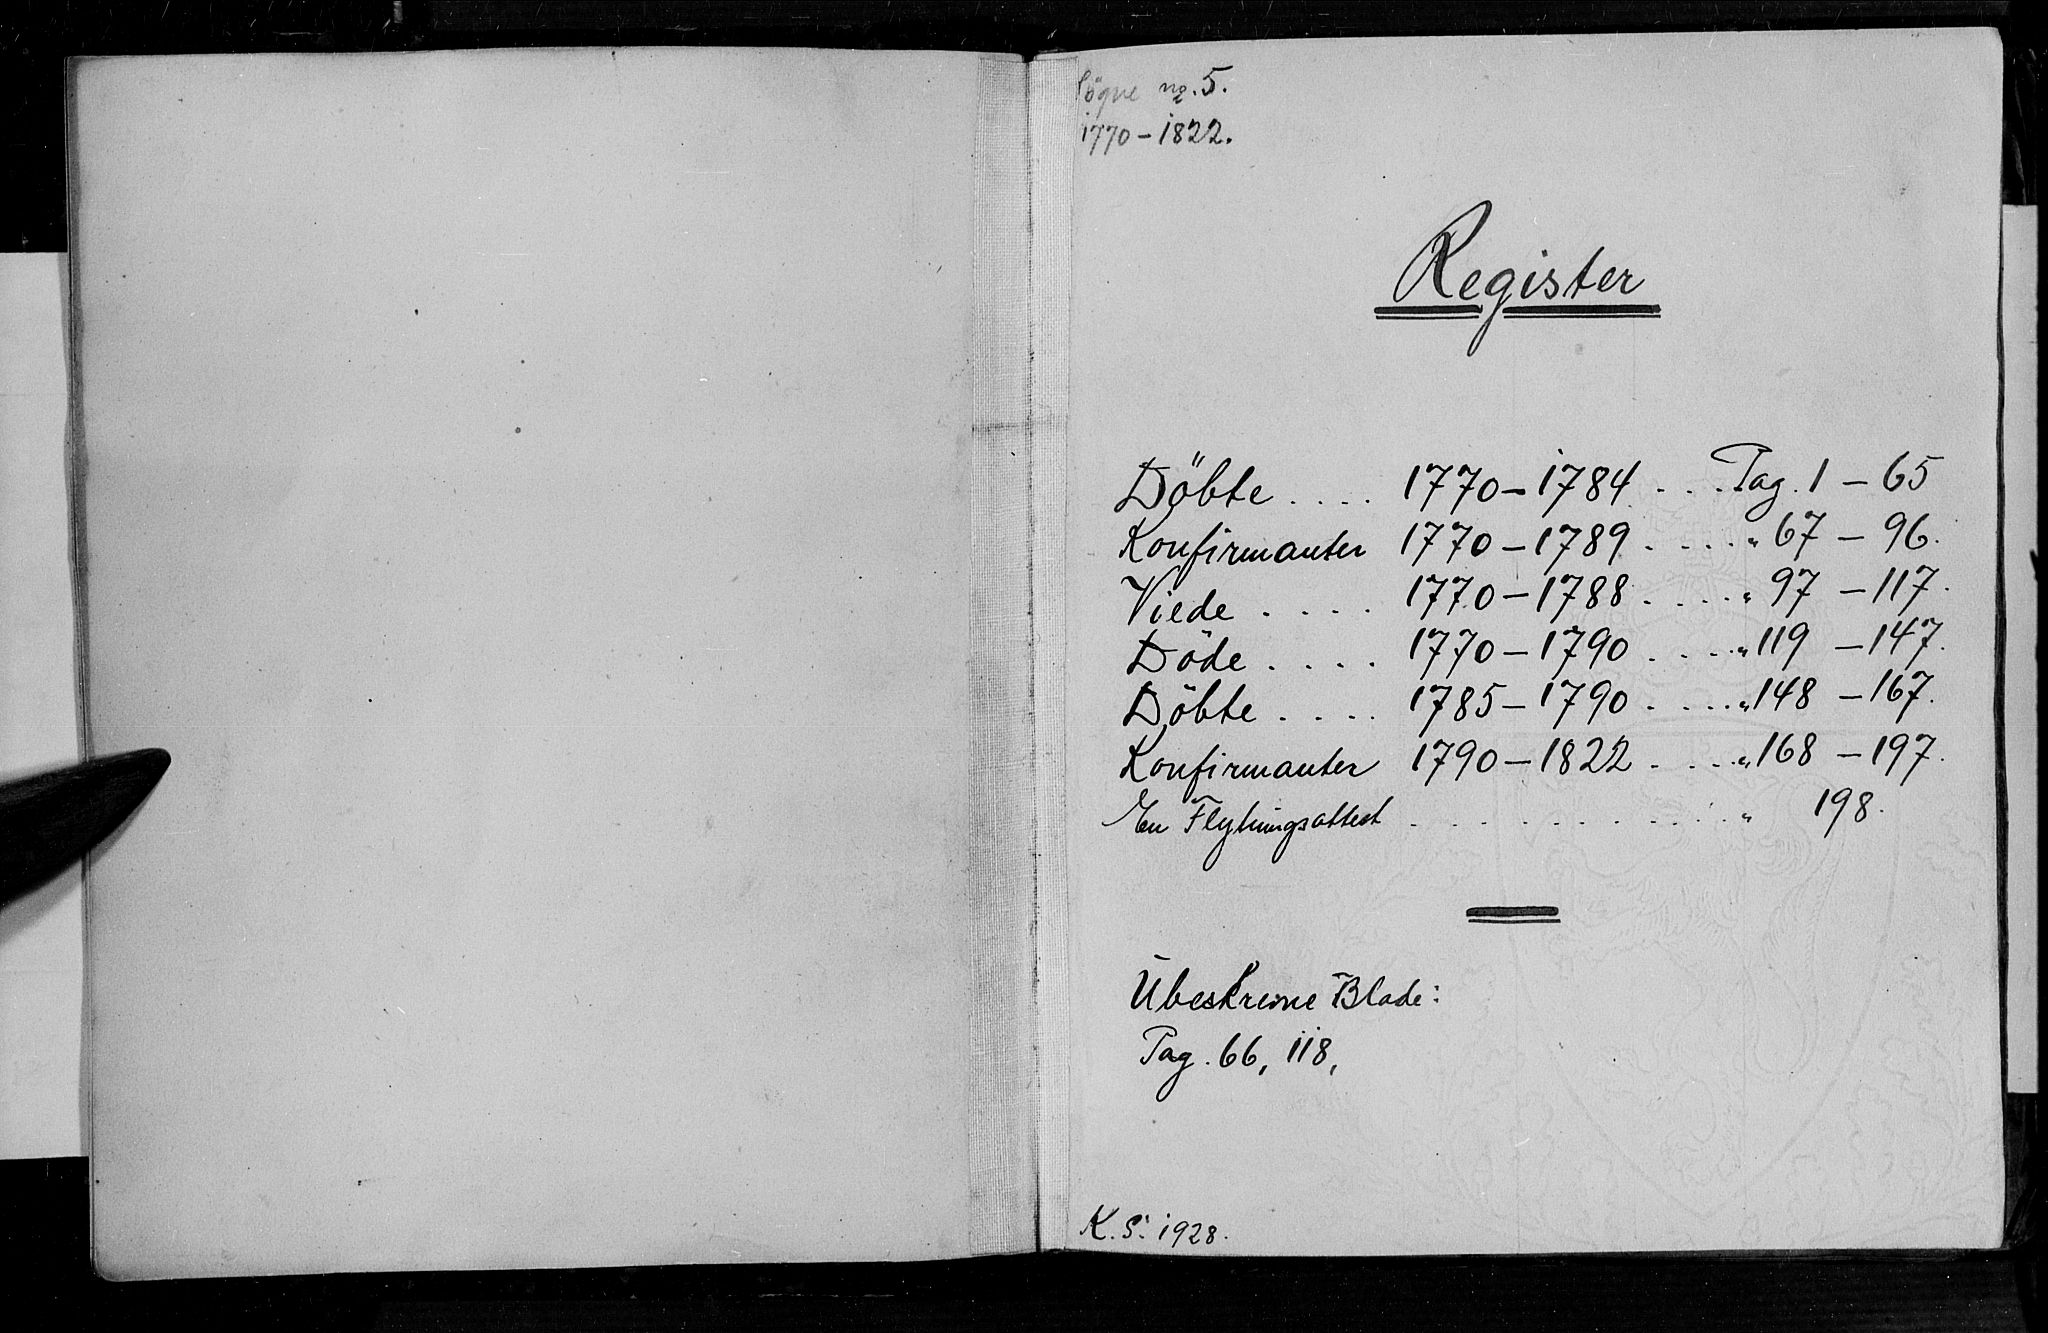 Sögne no. 5.
1770-1822.
Register
Döbte .... 1770-1784 ... Pag. 1 - 65
Konfirmanter 1770-1789 .... " 67 - 96.
Viede .... 1770-1788 .... " 97 - 117.
Döde .... 1770-1790 .... " 119 - 147.
Döbte .... 1785-1790 .... " 148 - 167.
Konfirmanter 1790-1822 .... " 168 - 197.
En Flytningsattest ............ " 198.
Ubeskrevne Blade:
Pag. 66, 118,
K. S. 1928.